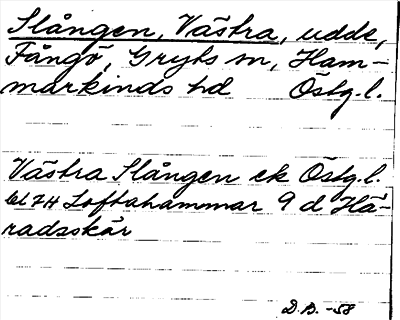 Slången, Västra, udde,
Fångö, Gryts sn, Ham-
markinds hd Östg.l.
Västra Slången ek Östg.l.
bl 7H Loftahammar 9 d Hä-
radsskär
D.B. -58